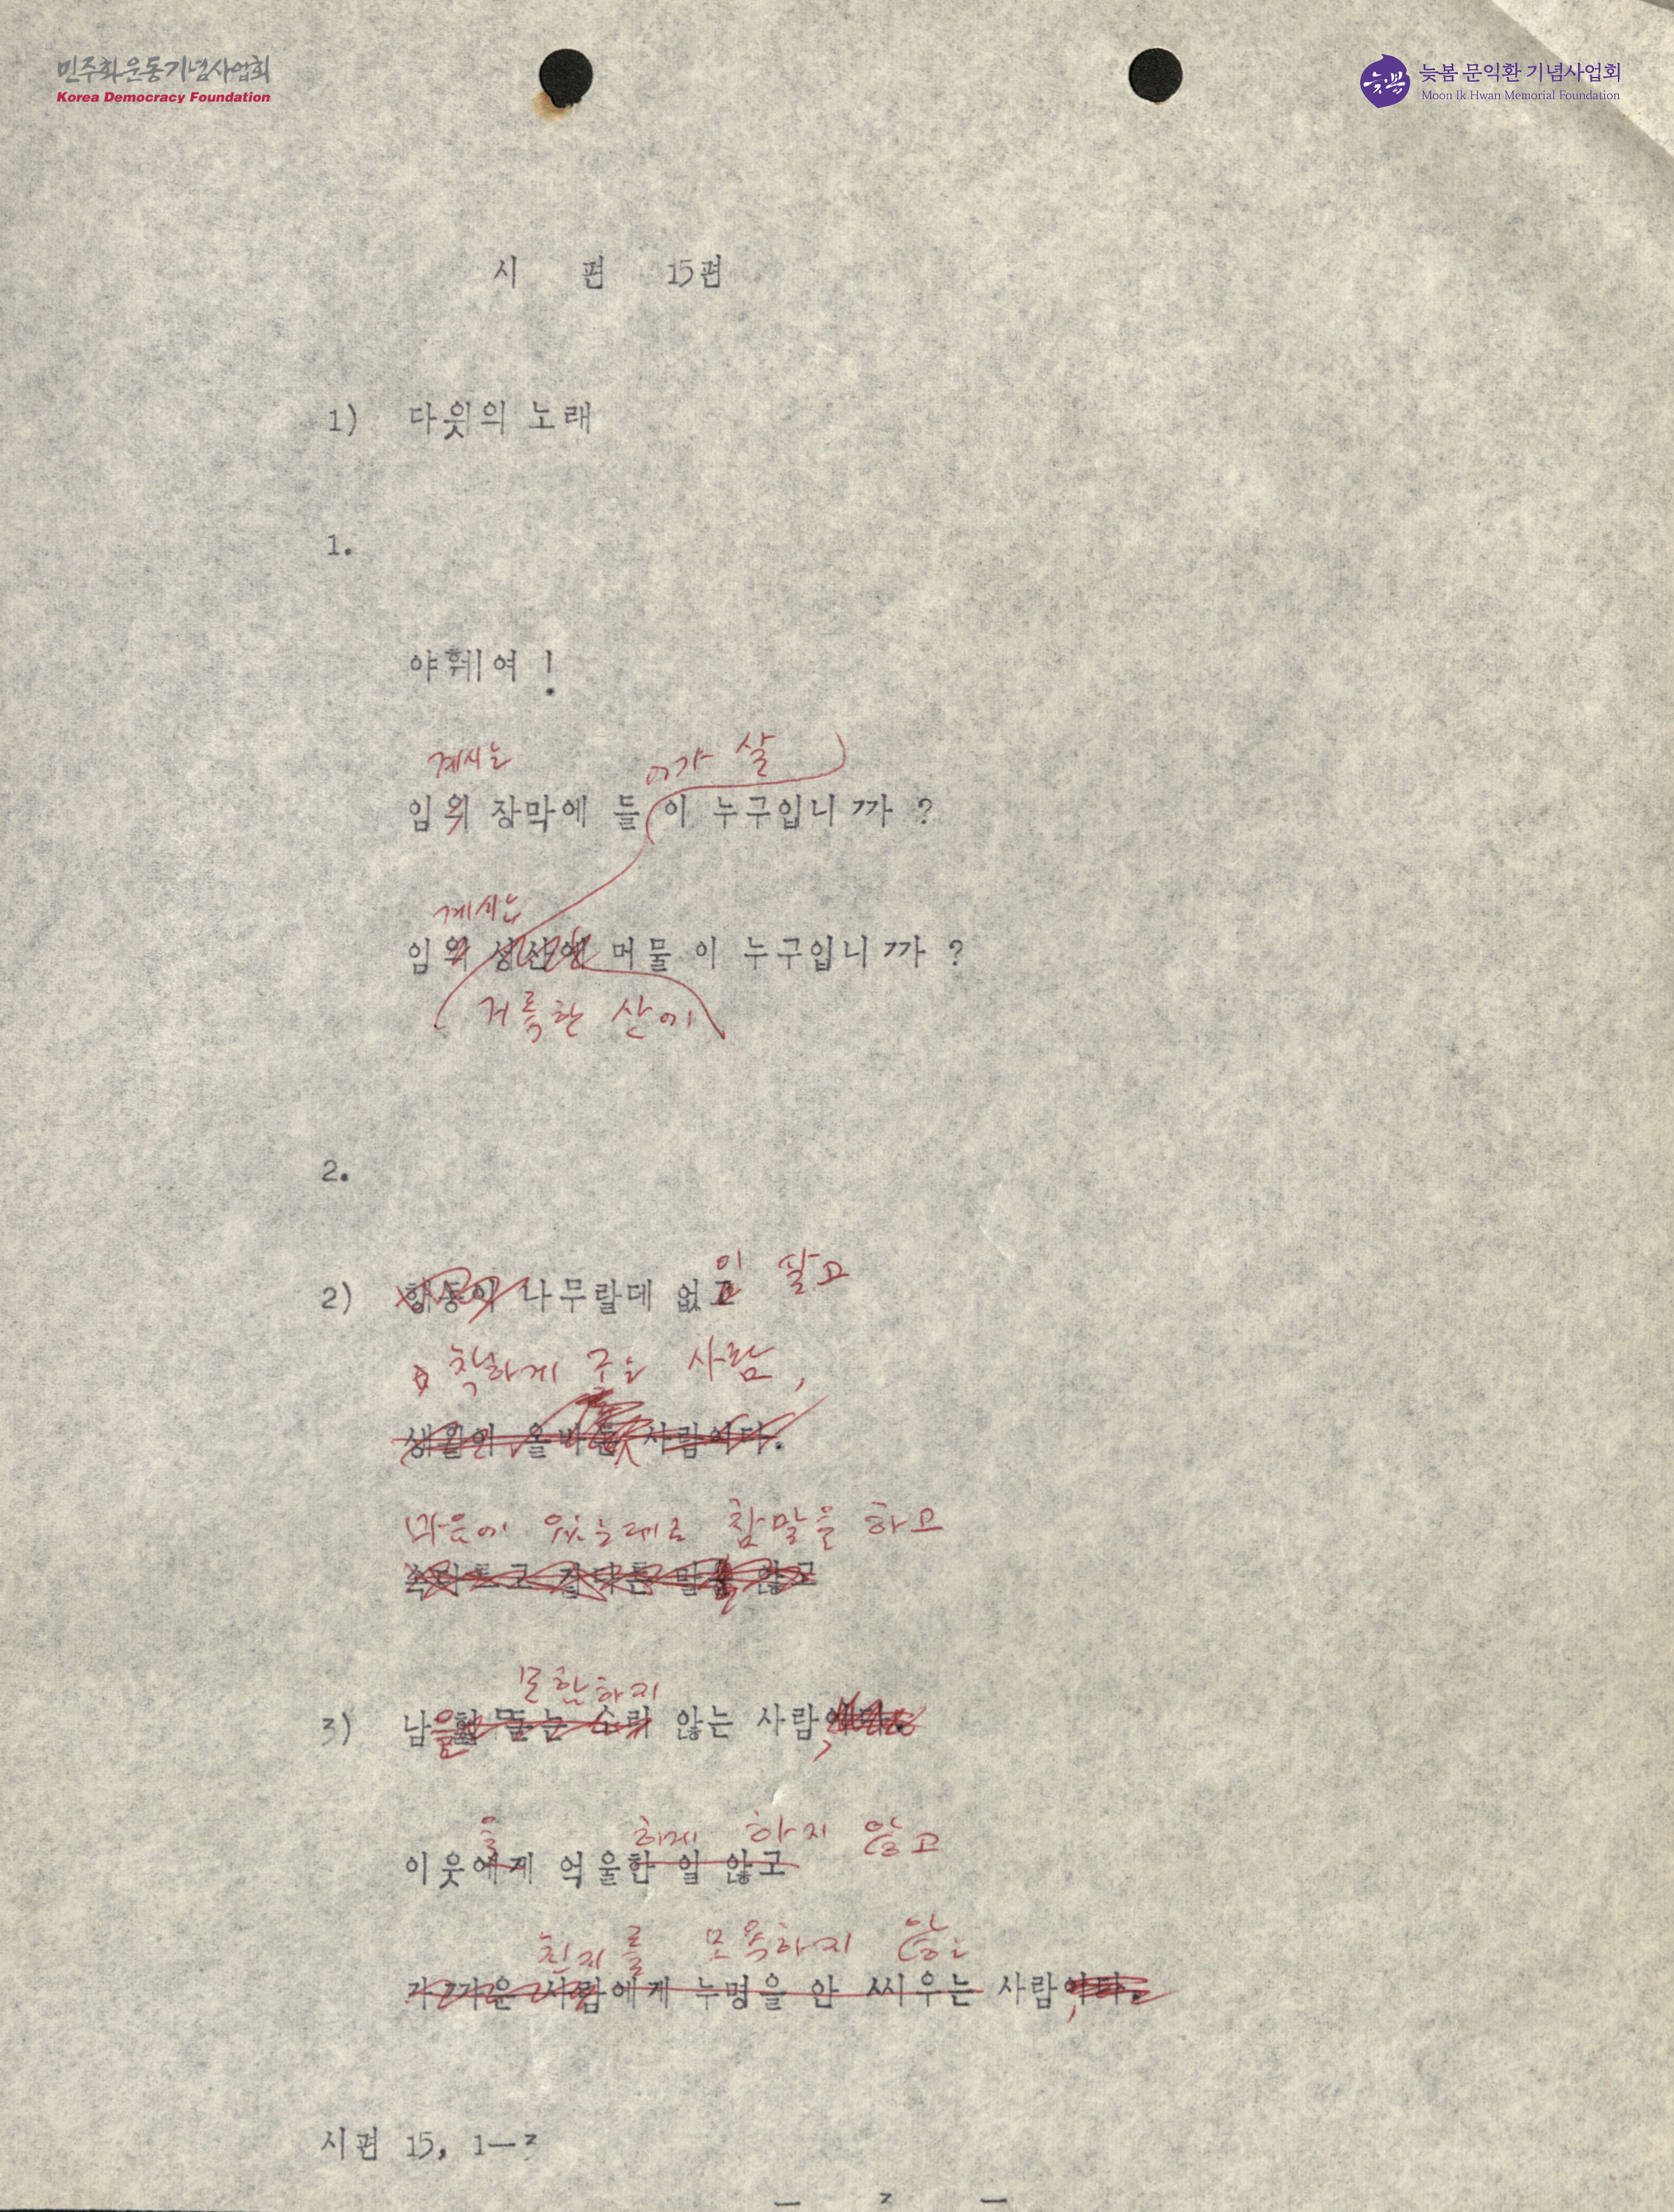 민주화운동기념사업회
Korea Democracy Foundation
늦봄
늦봄 문익환 기념사업회
Moon Ik Hwan Memorial Foundation
시 편 15편
1) 다윗의 노래
1.
야훼여 !
계시는 어가 살
임의 장막에 들 이 누구입니까 ?
계시는
임의 성산에 머물 이 누구입니까 ?
거룩한 산에
2.
이 살고
2) 행동이 나무랄데 없고
착하게 주는 사람,
생활이 올바른 사람이다.
마음에 있는대로 참말을 하고
말을 않고
모함하지
3) 남을 헐뜯는 소리 않는 사람이다.
을 하게 하지 않고
이웃에게 억울한 일 않고
친지를 모욕하지 않는
가까운 사람에게 누명을 안 씌우는 사람이다.
시편 15, 1—3
— 3 —